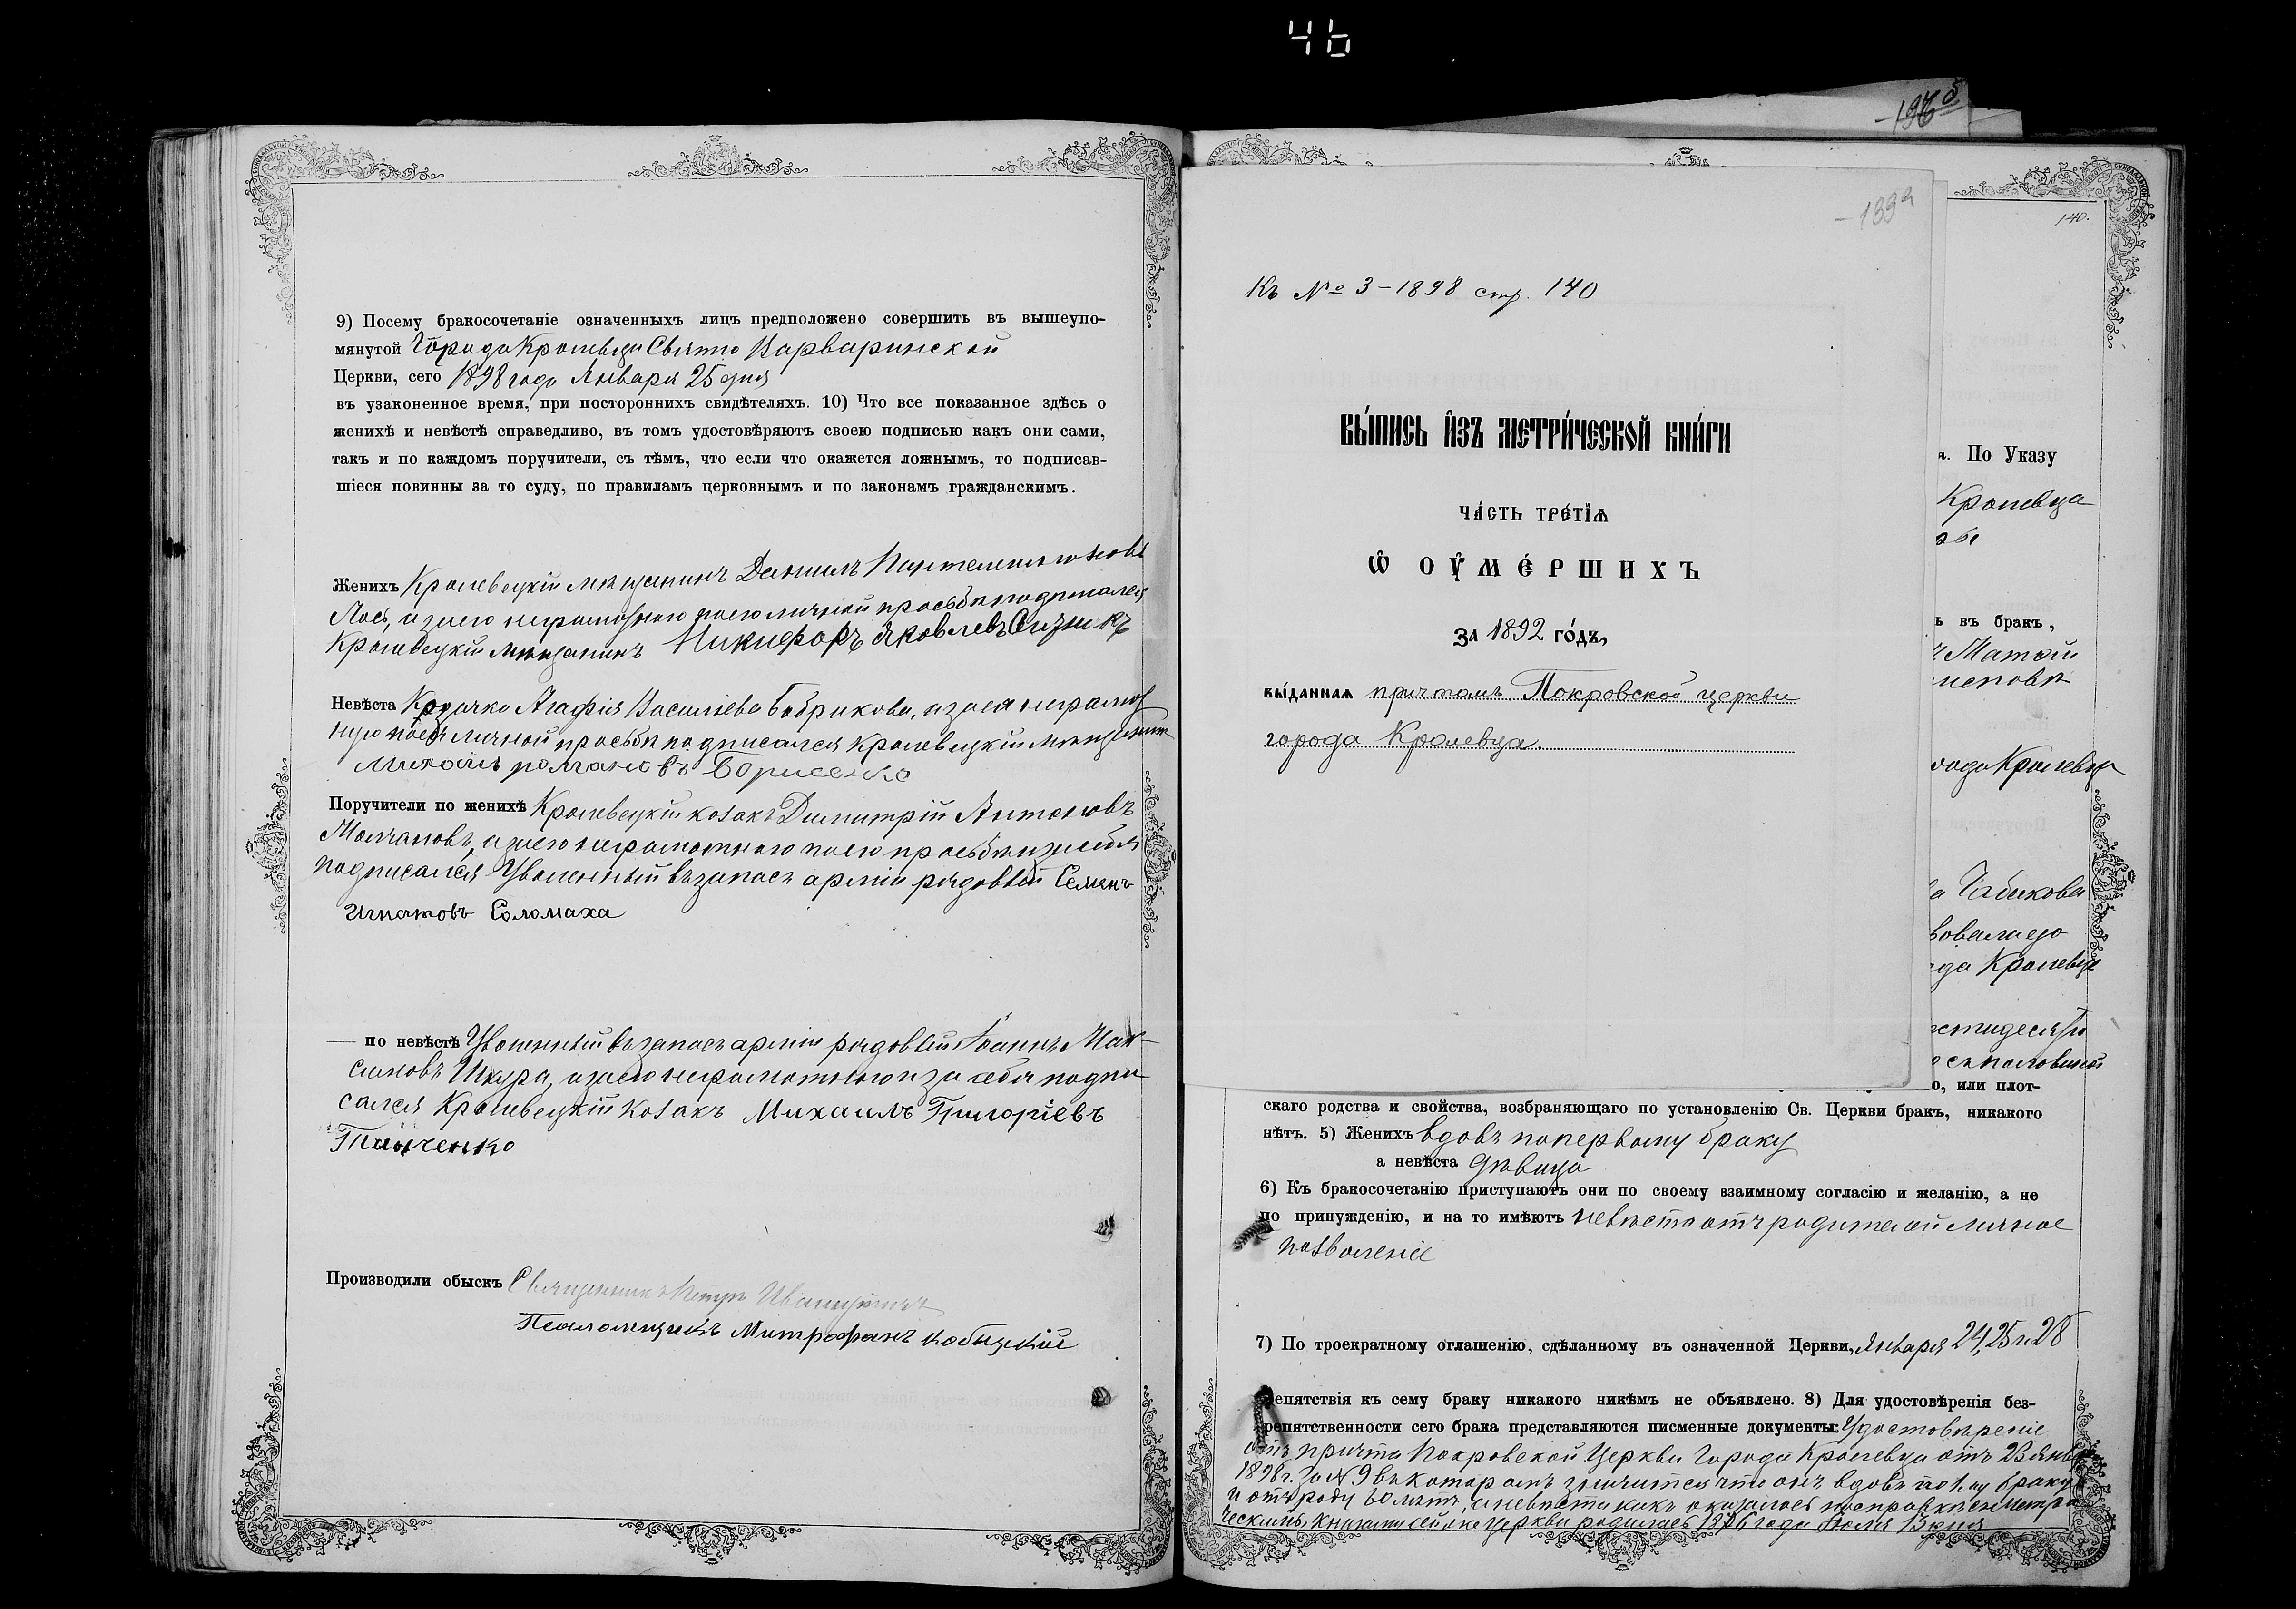 46
9) Посему бракосочетаніе означенныхъ лицъ предположено совершить въ вышеупо-
мянутой Города Кролевца Свято Варваринской
Церкви, сего 1898 года Января 25 дня
въ узаконенное время, при постороннихъ свидѣтеляхъ. 10) Что все показанное здѣсь о
женихѣ и невѣстѣ справедливо, въ томъ удостовѣряютъ своею подписью какъ они сами,
такъ и по каждомъ поручители, съ тѣмъ, что если что окажется ложнымъ, то подписав-
шіеся повинны за то суду, по правиламъ церковнымъ и по законамъ гражданскимъ.
Женихъ Кролевецкій мѣщанинъ Даніилъ Пантелеимоновъ
Лось, а за его неграмотного по его личной просьбѣ подписался
Кролевецкій мѣщанинъ Никифоръ Яковлевъ
Невѣста Козачка Агафія Васильева Бобрикова, а за ея неграмот
ную по ея личной просьбѣ подписался Кролевецкій мѣщанинъ
Михаилъ романовъ Борисенко
Поручители по женихѣ Кролевецкій козакъ Димитрій Антоновъ
Молчановъ, а за его неграмотного по его просьбѣ и за себя
подписался Уволенный въ запасъ арміи рядовый Семенъ
Игнатовъ Соломаха
— по невѣстѣ Уволенный въ запасъ арміи рядовый Іоаннъ Мак-
симовъ Шкура, а за его неграмотного и за себя подпи
сался Кролевецкій Козакъ Михаилъ Григоріевъ
Производили обыскъ Священникъ Петръ
Псаломщикъ Митрофанъ Кобыжскій
-139а
Къ № 3-1898 стр. 140
ВЫ́ПИСЬ И҆ЗЪ МЕТРИ́ЧЕСКОЙ КНИ́ГИ
ЧА́СТЬ ТРЕ́ТІѦ
Ѡ҆ ОУ҆МЕ́РШИХЪ
ЗА 1892 ГО́ДЪ,
ВЫ́ДАННАѦ причтомъ Покровской церкви
города Кролевца.
140.
я. По Указу
Кролевца
ь въ бракъ,
Матѳій
рода Кролевца
а Чабикова
вовалицо
да Кролевца
съ половиной
о, или плот-
скаго родства и свойства, возбраняющаго по установленію Св. Церкви бракъ, никакого
нѣтъ. 5) Женихъ вдовъ по первому браку
а невѣста дѣвица
6) Къ бракосочетанію приступаютъ они по своему взаимному согласію и желанію, а не
по принужденію, и на то имѣютъ невѣста отъ родителей личное
позволеніе
7) По троекратному оглашенію, сдѣланному въ означенной Церкви, Января 24, 25 и 28
репятствія къ сему браку никакого никѣмъ не объявлено. 8) Для удостовѣренія без-
репятственности сего брака представляются писменные документы: Удостовѣреніе
отъ причта Покровской Церкви Города Кролевца отъ 23 янв
1898 г. за № 9 въ которомъ значится что онъ вдовъ по 1му браку
и отъ роду 60 лѣтъ, а невѣста какъ оказалось по справкѣ съ метри
ческими книгами сей же церкви родилась 1876 года Іюля 13 дня